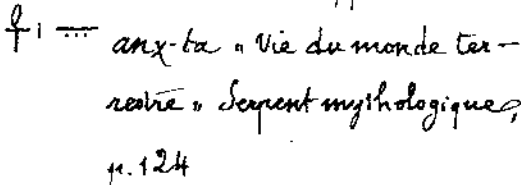 anχ-ta „ Vie du monde ter-
restre „ Serpent mythologique,
p. 124